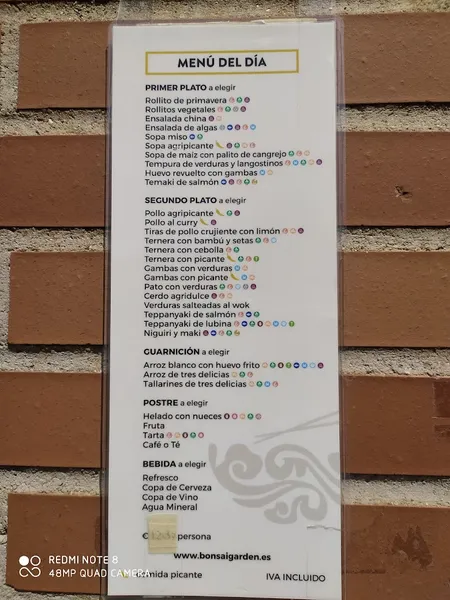 MENÚ DEL DÍA
PRIMER PLATO a elegir
Rollito de primavera
Rollitos vegetales
Ensalada china
Ensalada de algas
Sopa miso
Sopa agripicante
Sopa de maiz con palito de cangrejo
Tempura de verduras y langostinos
Huevo revuelto con gambas
Temaki de salmón
SEGUNDO PLATO a elegir
Pollo agripicante
Pollo al curry
Tiras de pollo crujiente con limón
Ternera con bambú y setas
Ternera con cebolla
Ternera con picante
Gambas con verduras
Gambas con picante
Pato con verduras
Cerdo agridulce
Verduras salteadas al wok
Teppanyaki de salmón
Teppanyaki de lubina
Niguiri y maki
GUARNICIÓN a elegir
Arroz blanco con huevo frito
Arroz de tres delicias
Tallarines de tres delicias
POSTRE a elegir
Helado con nueces
Fruta
Tarta
Café o Té
BEBIDA a elegir
Refresco
Copa de Cerveza
Copa de Vino
Agua Mineral
persona
www.bonsaigarden.es
comida picante IVA INCLUIDO
REDMI NOTE 8
48MP QUAD CAMERA